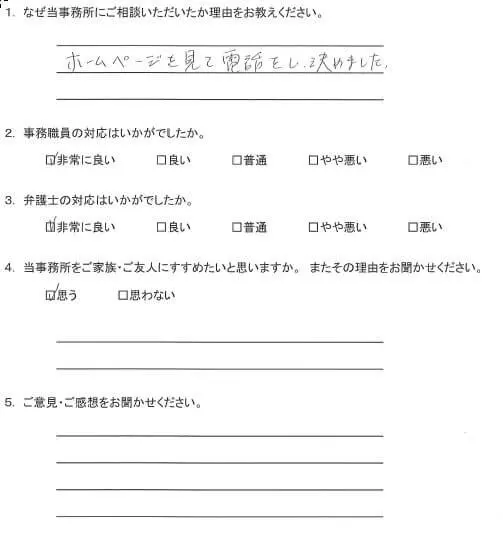 1. なぜ当事務所にご相談いただいたか理由をお教えください。
ホームページを見て電話をし、決めました。
2. 事務職員の対応はいかがでしたか。
☑非常に良い □良い □普通 □やや悪い □悪い
3. 弁護士の対応はいかがでしたか。
☑非常に良い □良い □普通 □やや悪い □悪い
4. 当事務所をご家族・ご友人にすすめたいと思いますか。 またその理由をお聞かせください。
☑思う □思わない
5. ご意見・ご感想をお聞かせください。